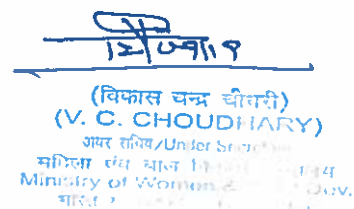 (विकास चन्द्र चौधरी)
(V. C. CHOUDHARY)
अवर सचिव/Under Secre
महिला एवं बाल
Ministry of Women & Dev.
भारत